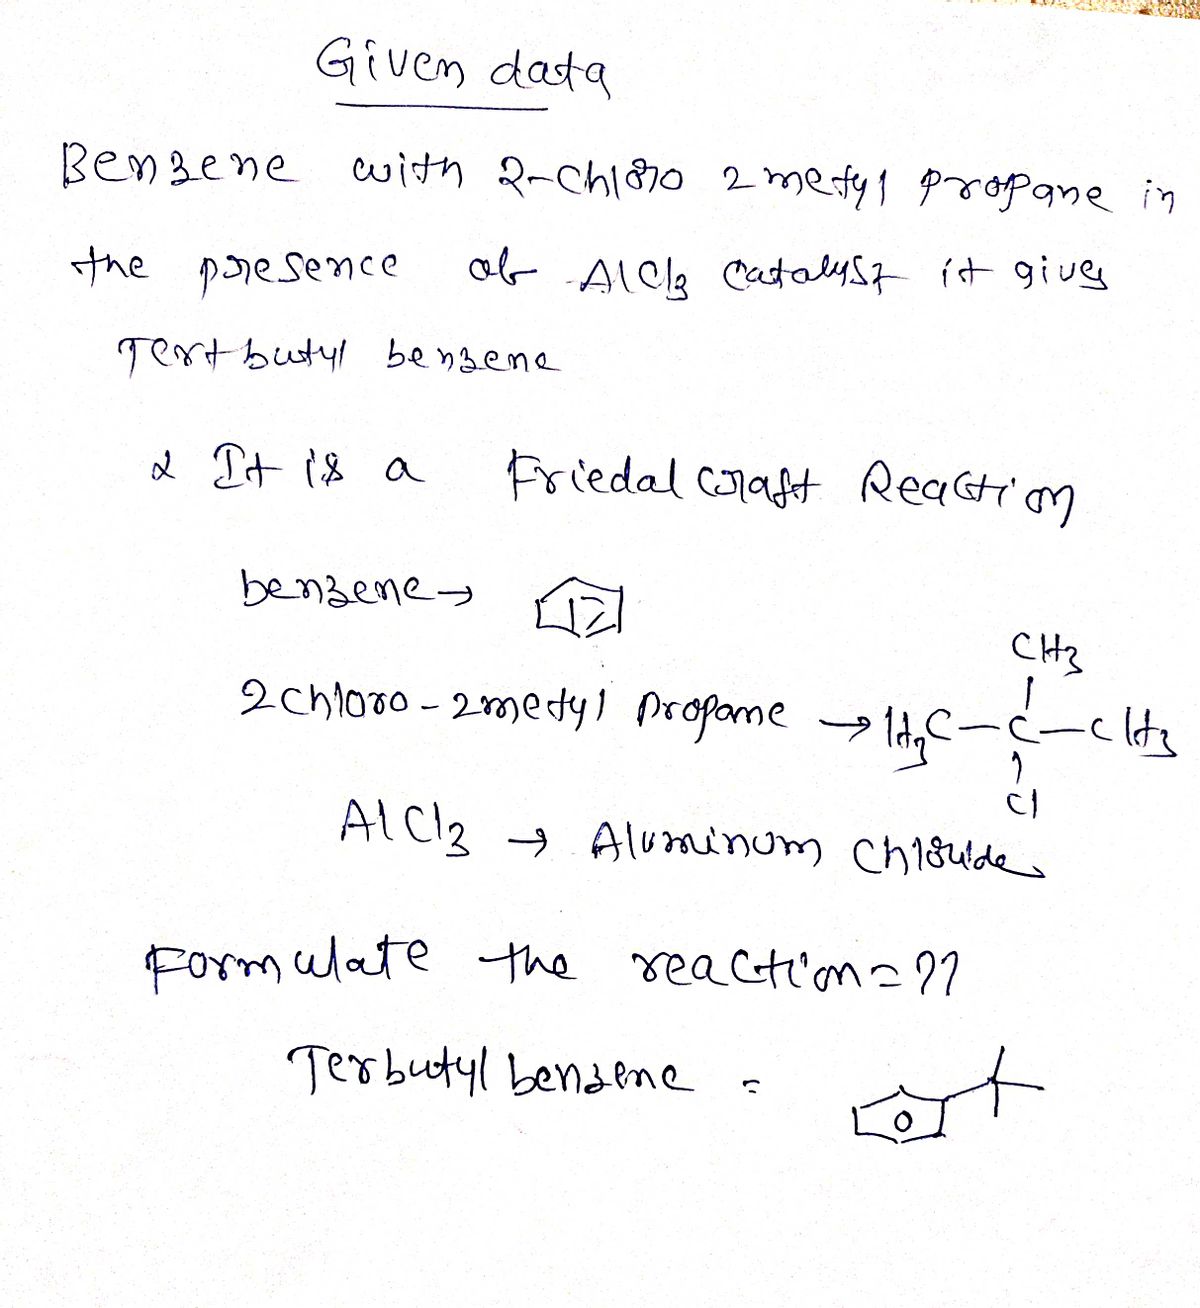 Given data
Benzene with 2-chloro 2 metyl propane in
the presence of AlCl3 catalyst it gives
Tertbutyl benzene
& It is a Friedal craft Reaction
benzene →
2chloro-2metyl propane → H3C-C-CH3
CH3
Cl
AlCl3 → Aluminum chloride
Formulate the reaction = ??
Terbutyl benzene =